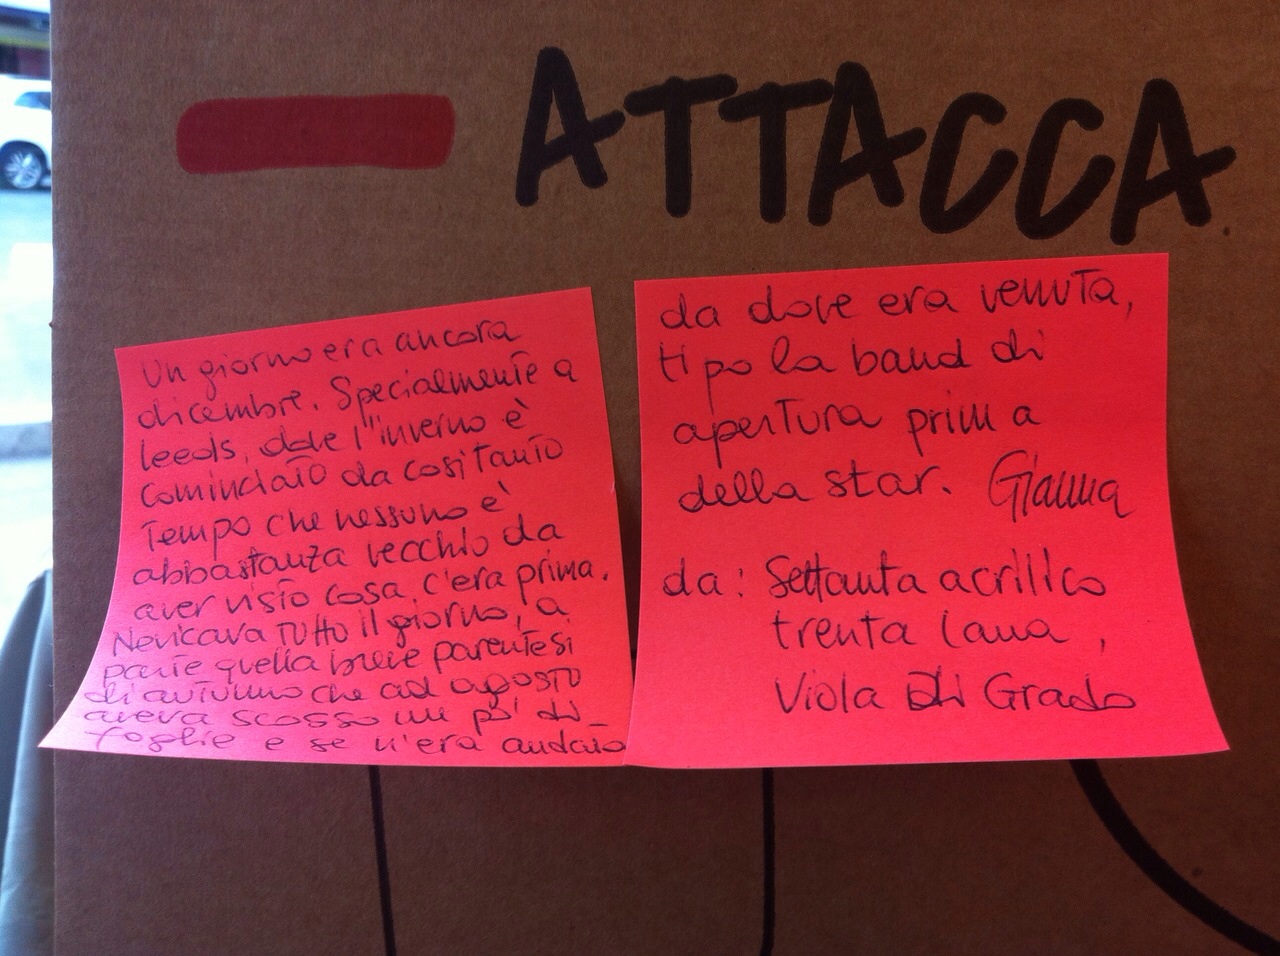 ATTACCA
Un giorno era ancora
dicembre. Specialmente a
Leeds, dove l'inverno è
cominciato da così tanto
tempo che nessuno è
abbastanza vecchio da
aver visto cosa c'era prima.
Nevicava tutto il giorno, a
parte quella breve parentesi
di autunno che ad agosto
aveva scosso un po' di
foglie e se n'era andato
da dove era venuta,
tipo la band di
apertura prima
della star. Gianna
da: Settanta acrilico
trenta lana,
Viola Di Grado